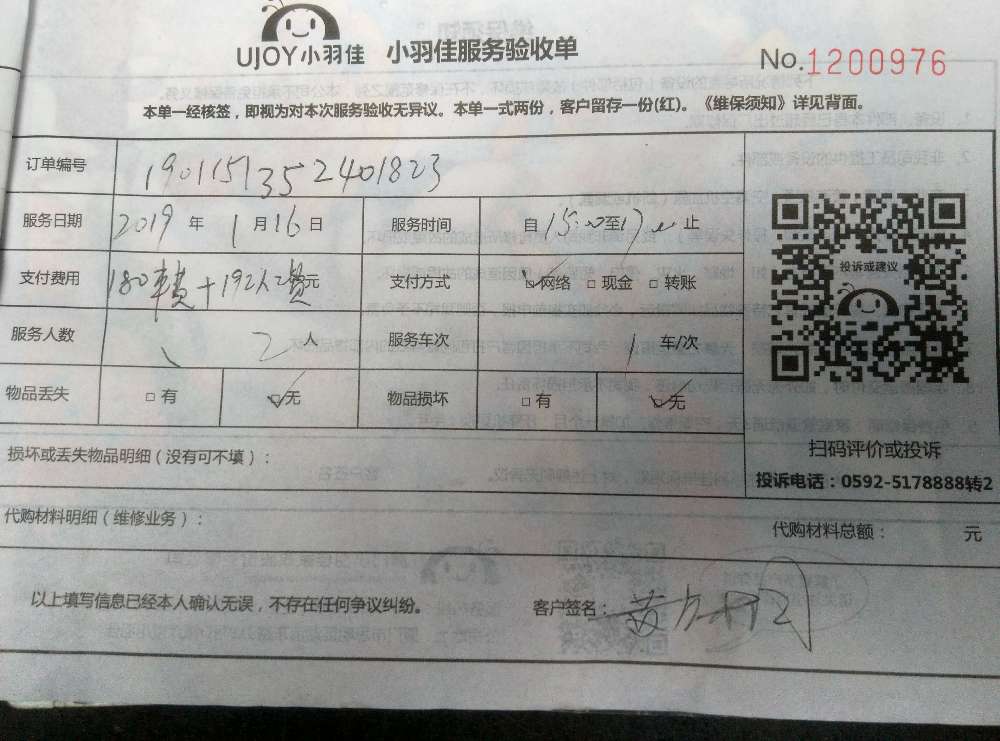 UJOY小羽佳 小羽佳服务验收单
No.1200976
本单一经核签，即视为对本次服务验收无异议。本单一式两份，客户留存一份(红)。《维保须知》详见背面。
订单编号 1901151352401823
服务日期 2019 年 1 月 16 日 服务时间 自 15:00 至 17:00 止
支付费用 180车费+192人工费元 支付方式 ☑网络 □现金 □转账
服务人数 2 人 服务车次 1 车/次
物品丢失 □有 ☑无 物品损坏 □有 ☑无
投诉或建议
扫码评价或投诉
投诉电话：0592-5178888转2
损坏或丢失物品明细（没有可不填）：
代购材料明细（维修业务）： 代购材料总额： 元
以上填写信息已经本人确认无误，不存在任何争议纠纷。 客户签名：